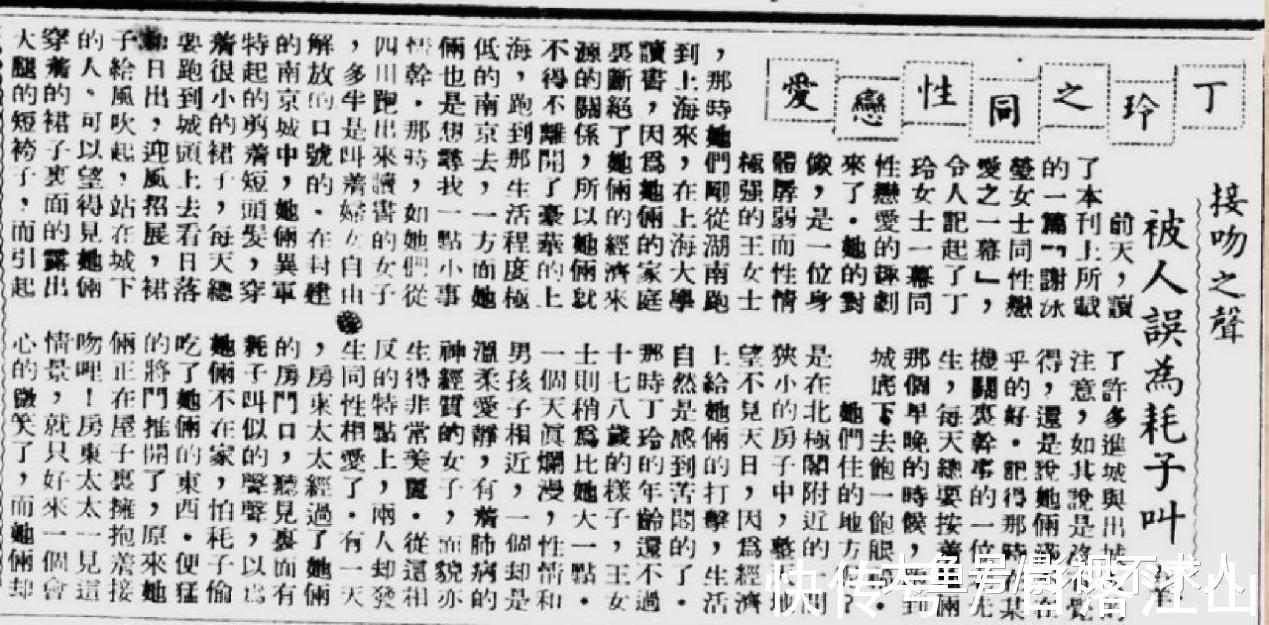 丁玲之同性戀愛
接吻之聲
被人誤為耗子叫
前天,讀
了本刊上所載
的一篇「謝冰
瑩女士同性戀
愛之一幕」,
令人記起了丁
玲女士一幕同
性戀愛的趣劇
來了.她的對
像,是一位身
體孱弱而性情
極强的王女士
,那時她們剛從湖南跑
到上海來,在上海大學
讀書,因爲她倆的家庭
裏斷絕了她倆的經濟來
源的關係,所以她倆就
不得不離開了豪華的上
海,跑到那生活程度極
低的南京去,一方面她
倆也是想尋我一點小事
情幹.那時,如她們從
四川跑出來讀書的女子
,多半是叫着婦女自由
解放的口號的.在封建
的南京城中,她倆異軍
特起的剪着短頭髮,穿
着很小的裙子,每天總
要跑到城頭上去看日落
日出,迎風招展,裙
子給風吹起,站在城下
的人、可以望得見她倆
穿着的裙子裏面的露出
大腿的短袴子,而引起
了許多進城與出城的
注意,如其說是
得,還是說她倆在
乎的好.記得那時某
機關裏幹事的一位先
生,每天總要按着倆
那個早晚的時候,到
城底下去飽一飽眼.
她們住的地方?
是在北極閣附近的一間
狹小的房子中,整地
望不見天日,因爲經濟
上給她倆的打擊,生活
自然是感到苦悶的了.
那時丁玲的年齡還不過
十七八歲的樣子,王女
士則稍爲比她大一點.
一個天眞爛漫,性情和
男孩子相近,一個却是
溫柔愛靜,有着肺病的
神經質的女子,而貌亦
生得非常美麗.從這相
反的特點上,兩人却發
生同性相愛了.有一天
,房東太太經過了她倆
的房門口,聽見裏面有
耗子叫似的聲聲,以爲
她倆不在家,怕耗子偷
吃了她倆的東西.便猛
的將門推開了,原來她
倆正在屋子裏擁抱着接
吻哩!房東太太一見這
情景,就只好來一個會
心的微笑了,而她倆却